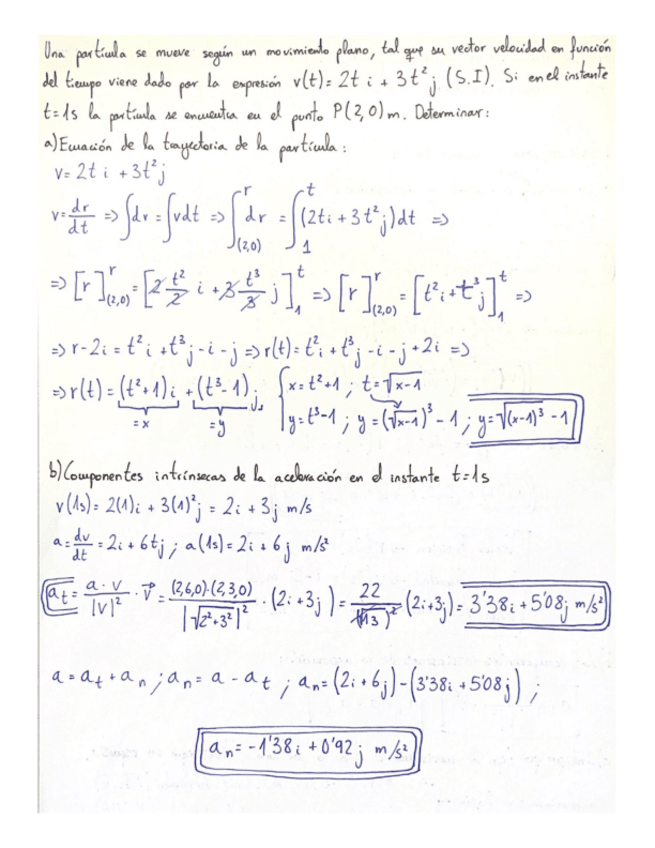 Una partícula se mueve según un movimiento plano, tal que su vector velocidad en función
del tiempo viene dado por la expresión v(t)= 2t i + 3t² j (S.I). Si en el instante
t=1s la partícula se encuentra en el punto P(2,0)m. Determinar:
a) Ecuación de la trayectoria de la partícula:
v= 2t i + 3t² j
v= dr/dt => ∫dr = ∫vdt => ∫_(2,0)^r dr = ∫_1^t (2ti + 3t²j)dt =>
=> [r]_(2,0)^r = [2 t²/2 i + 3 t³/3 j]_1^t => [r]_(2,0)^r = [t²i + t³j]_1^t =>
=> r-2i = t²i + t³j - i - j => r(t) = t²i + t³j - i - j + 2i =>
=> r(t) = (t²+1)i + (t³-1)j { x= t²+1 ; t= √x-1
=x =y y= t³-1 ; y = (√x-1)³ - 1 ; y= √(x-1)³ - 1
b) Componentes intrínsecas de la aceleración en el instante t=1s
v(1s)= 2(1)i + 3(1)²j = 2i + 3j m/s
a= dv/dt = 2i + 6tj ; a(1s)= 2i + 6j m/s²
at = a·v/|v|² · v⃗ = (2,6,0)·(2,3,0)/|√2²+3²|² · (2i+3j) = 22/(√13)² (2i+3j) = 3'38i + 5'08j m/s²
a = at + an ; an = a - at ; an = (2i + 6j) - (3'38i + 5'08j) ;
an = -1'38i + 0'92j m/s²